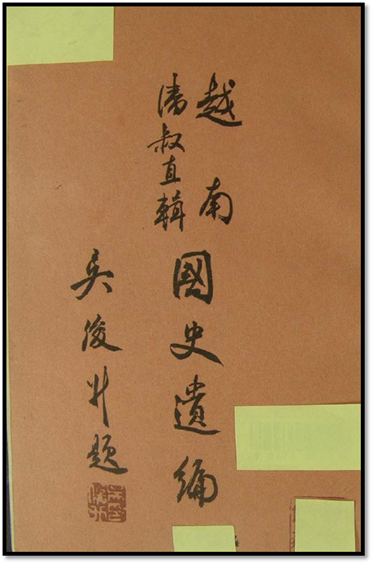 越南
國史遺編
潘叔直輯
吳俊升題